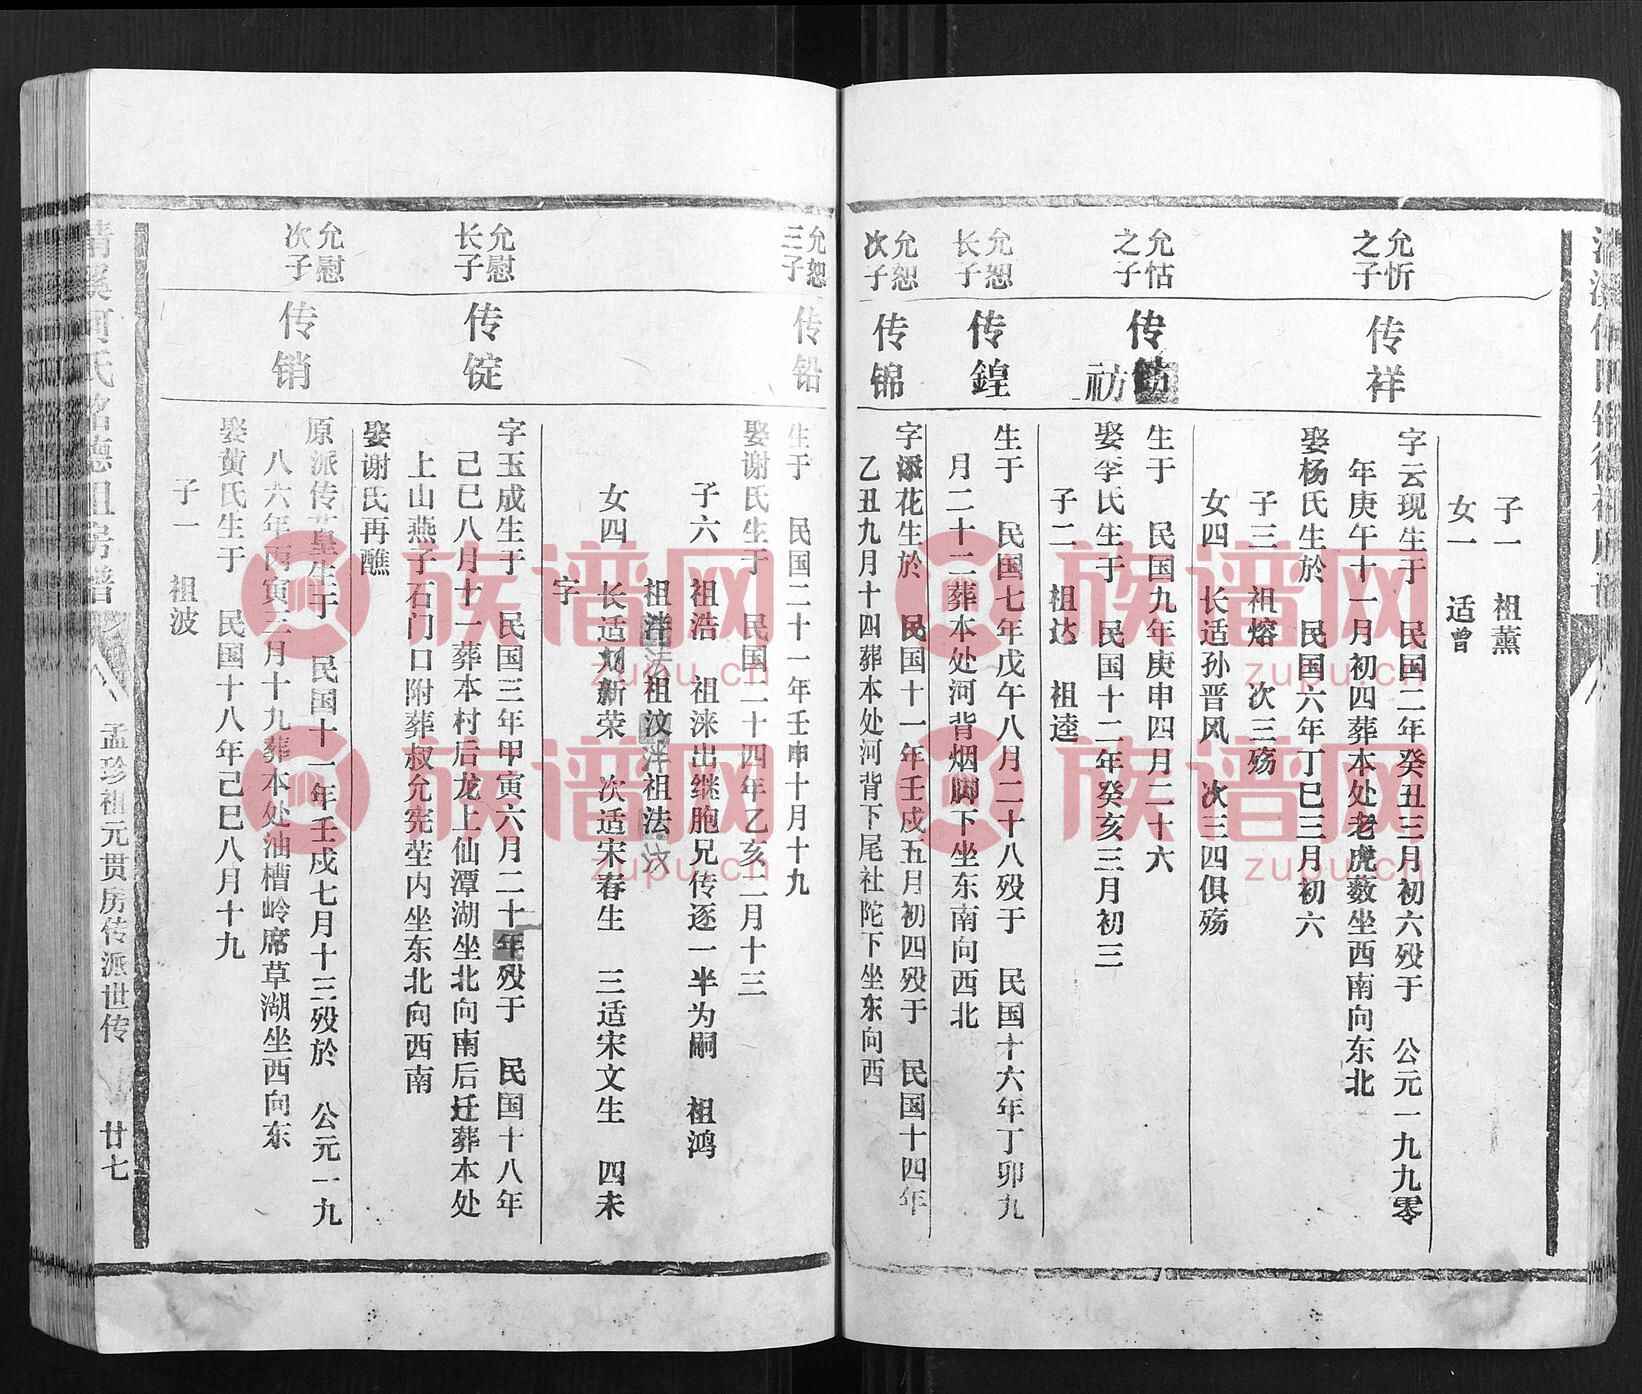 子一 祖薰
女一 适曾
允忻
之子
传祥
字云现生于 民国二年癸丑三月初六殁于 公元一九九零
年庚午十一月初四葬本处老虎薮坐西南向东北
娶杨氏生於 民国六年丁巳三月初六
子三 祖熔 次三殇
女四 长适孙晋风 次三四俱殇
允怙
之子
传
祊
生于 民国九年庚申四月二十六
娶李氏生于 民国十二年癸亥三月初三
子二 祖达 祖逵
允恕
长子
传锽
生于 民国七年戊午八月二十八殁于 民国十六年丁卯九
月二十二葬本处河背烟脚下坐东南向西北
允恕
次子
传锦
字添花生於 民国十一年壬戌五月初四殁于 民国十四年
乙丑九月十四葬本处河背下尾社陀下坐东向西
允恕
三子
传铅
生于 民国二十一年壬申十月十九
娶谢氏生于 民国二十四年乙亥二月十三
子六 祖浩 祖涞出继胞兄传逐一半为嗣 祖鸿
祖法祖汶洋祖法汶
女四 长适刘新荣 次适宋春生 三适宋文生 四未
字
允慰
长子
传锭
字玉成生于 民国三年甲寅六月二十年殁于 民国十八年
己巳八月十一葬本村后龙上仙潭湖坐北向南后迁葬本处
上山燕子石门口附葬叔允宪茔内坐东北向西南
娶谢氏再醮
允慰
次子
传销
原派传 皇生于 民国十一年壬戌七月十三殁於 公元一九
八六年丙寅三月十九葬本处油槽岭席草湖坐西向东
娶黄氏生于 民国十八年己巳八月十九
子一 祖波
清溪何氏铭德祖房谱
孟珍祖元贯房传派世传
廿七
族谱网
zupu.cn
族谱网
zupu.cn
族谱网
zupu.cn
族谱网
zupu.cn